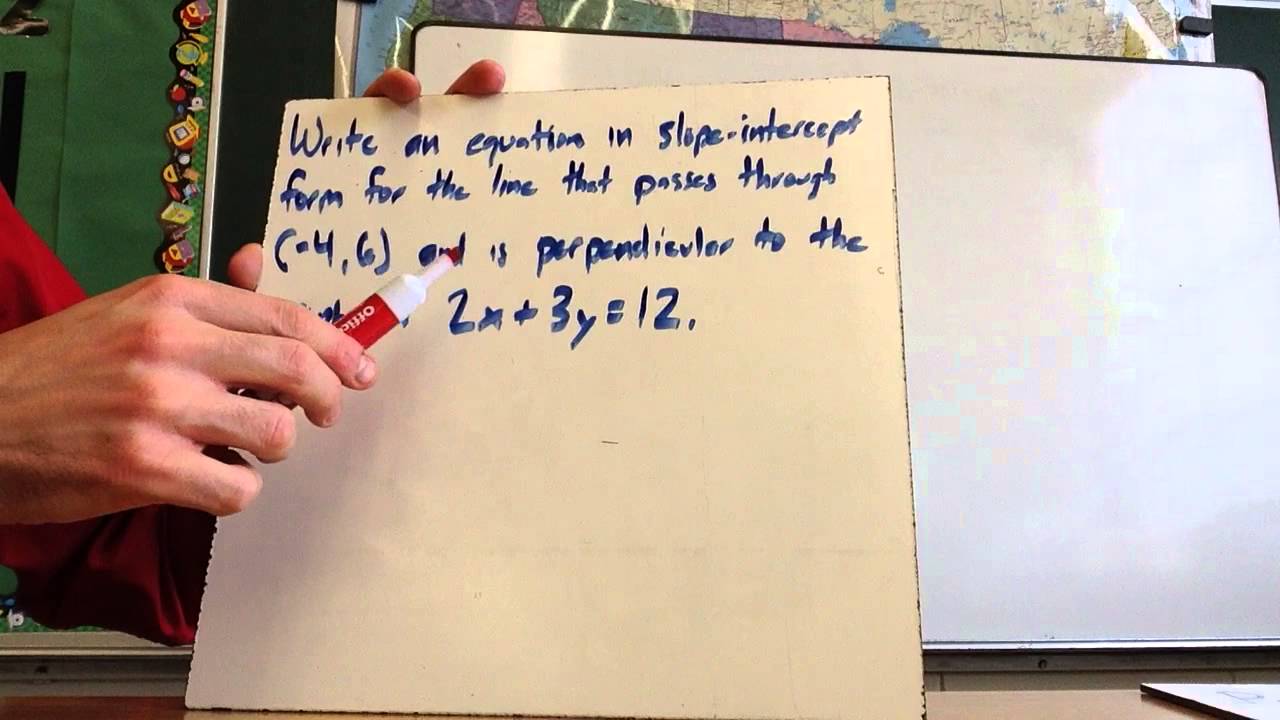 Write an equation in slope-intercept
form for the line that passes through
(-4, 6) and is perpendicular to the
2x + 3y = 12.
Office